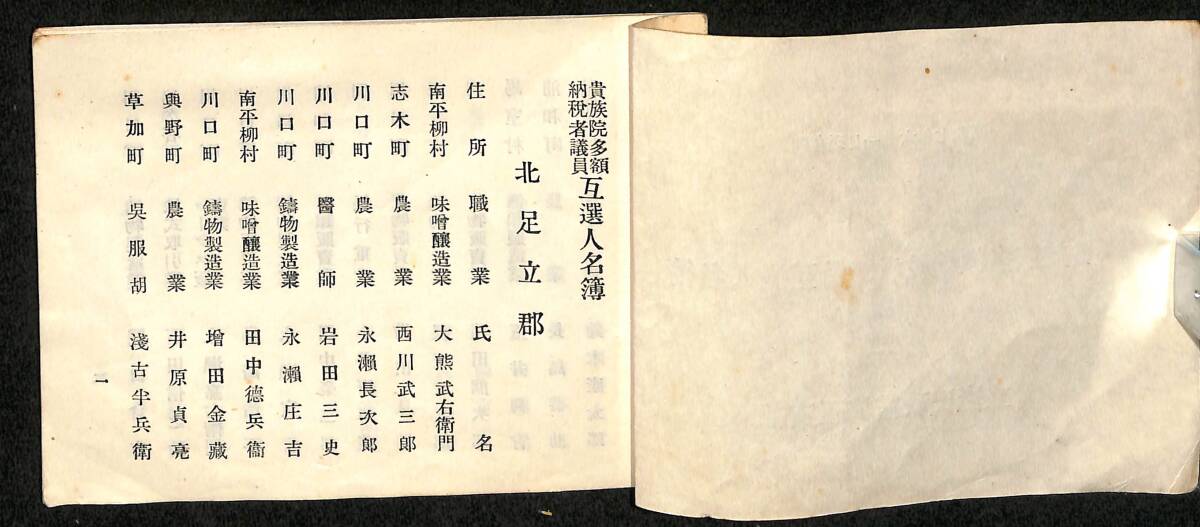 貴族院多額納税者議員互選人名簿
北足立郡
住所 職業 氏名
南平柳村 味噌醸造業 大熊武右衛門
志木町 農業 西川武三郎
川口町 農業 永瀬長次郎
川口町 醫師 岩田三史
川口町 鑄物製造業 永瀬庄吉
南平柳村 味噌醸造業 田中德兵衞
川口町 鑄物製造業 增田金藏
與野町 農業 井原貞亮
草加町 吳服胡 淺古半兵衛
一